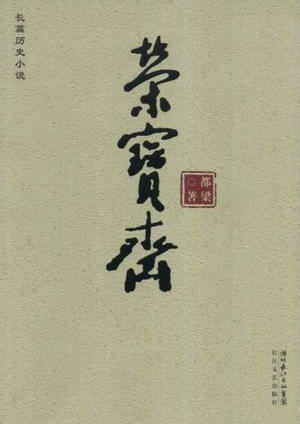 长篇历史小说
荣寶齋
都梁◎著
湖北长江出版集团
长江文艺出版社